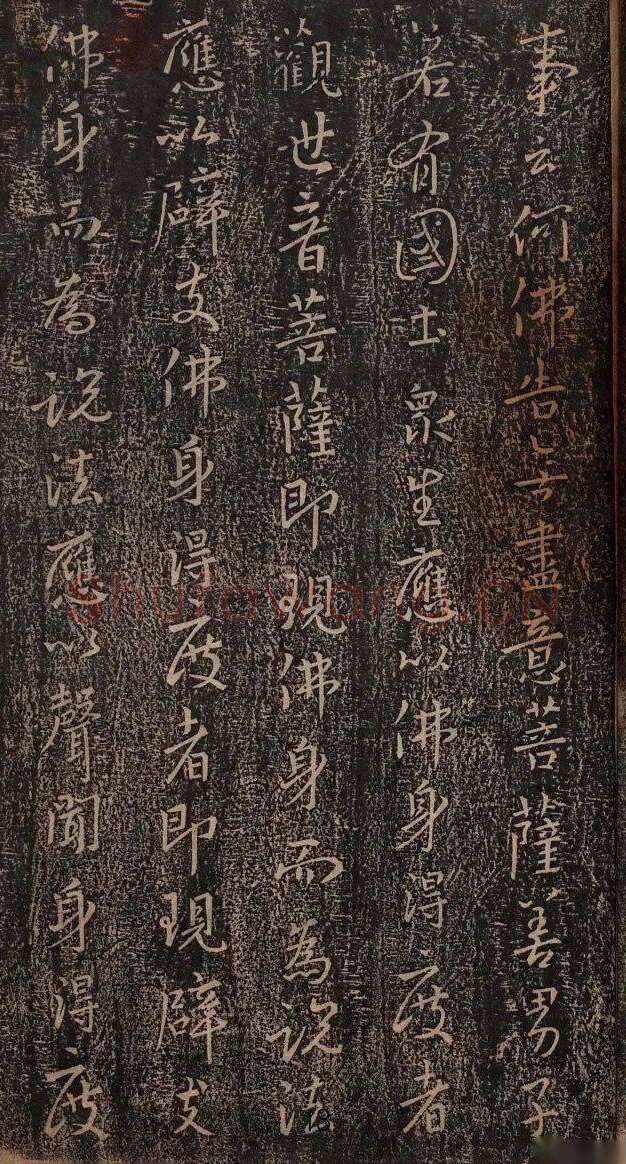 事云何佛告无盡意菩薩善男子
若有國土眾生應以佛身得度者
觀世音菩薩即現佛身而為說法
應以辟支佛身得度者即現辟支
佛身而為說法應以聲聞身得度
shufawang.cn